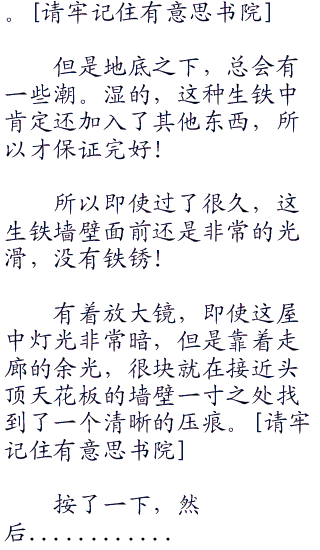 。[请牢记住有意思书院]
但是地底之下，总会有
一些潮。湿的，这种生铁中
肯定还加入了其他东西，所
以才保证完好！
所以即使过了很久，这
生铁墙壁面前还是非常的光
滑，没有铁锈！
有着放大镜，即使这屋
中灯光非常暗，但是靠着走
廊的余光，很块就在接近头
顶天花板的墙壁一寸之处找
到了一个清晰的压痕。[请牢
记住有意思书院]
按了一下，然
后............